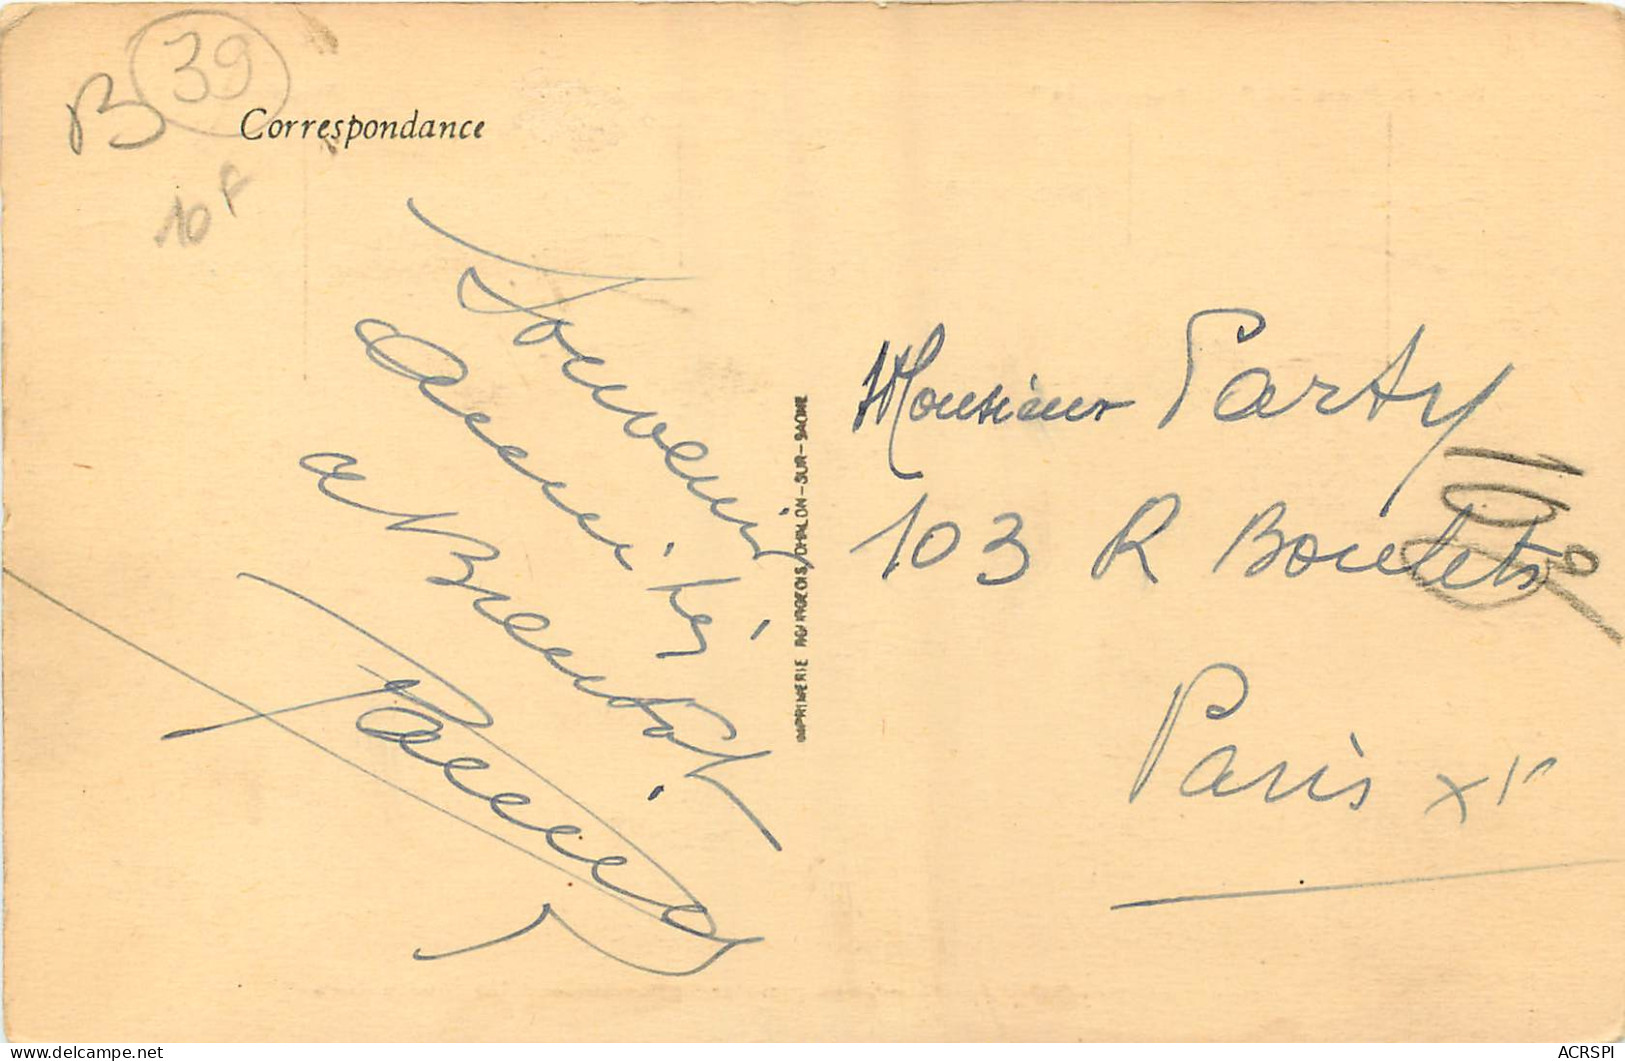 B 39
Correspondance
10 F
Souvenir
amitiés
a Bientôt
IMPRIMERIE BOURGEOIS, CHALON-SUR-SAONE
Monsieur Party
103 R Boulets
Paris XIe
10
ACRSPI